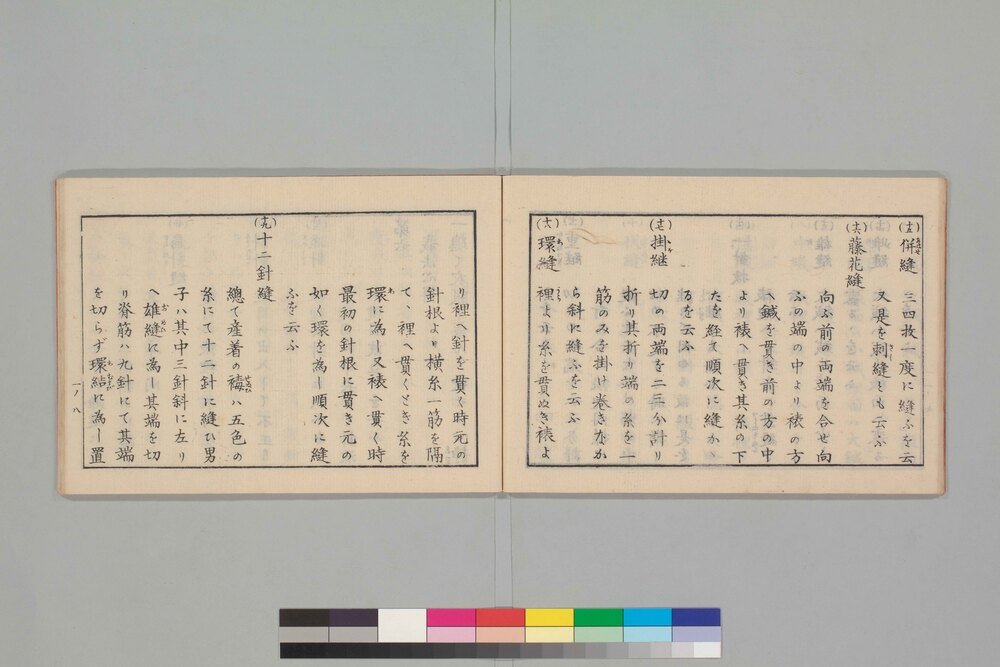 (十五)併縫　三四枚一度に縫ふを云
又是を刺縫とも云ふ
(十六)藤花縫
向ふ前の両端を合せ向
ふの端の中より裱の方
へ鍼を貫き前の方の中
より裱へ貫き其糸の下
たを経て順次に縫かゝ
るを云ふ
(十七)掛継
切の両端を二三分計り
折り其折り端の糸を一
筋のみを掛け巻きなか
ら斜に縫ふを云ふ
(十八)環縫　裡より糸を貫ぬき裱よ
り裡へ針を貫く時元の
針根より横糸一筋を隔
て、裡へ貫くとき糸を
環に為し又裱へ貫く時
最初の針根に貫き元の
如く環を為し順次に縫
ふを云ふ
(十九)十二針縫
總て産着の䙁ハ五色の
糸にて十二針に縫ひ男
子ハ其中三針斜に左り
へ雄縫に為し其端を切
り脊筋ハ九針にて其端
を切らず環結に為し置
一ノ八